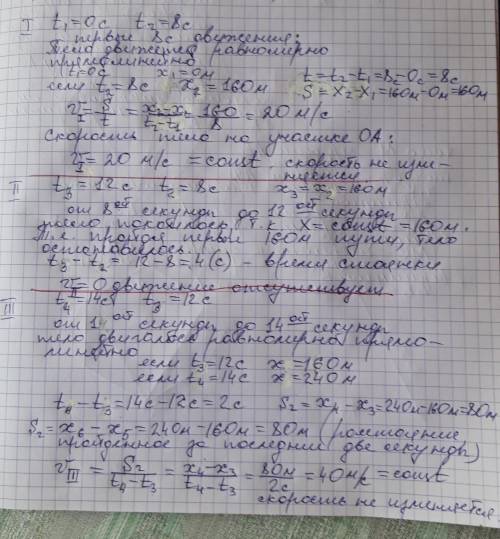 I t₁=0c t₂=8c
первые 8с движения:
Тело движется равномерно
прямолинейно
t₁=0c x₁=0м t=t₂-t₁=8c-0c=8c
если t₂=8c x₂=160м S=X₂-X₁=160м-0м=160м
v_I=S/t=(x₂-x₁)/(t₂-t₁)=160/8=20 м/с
Скорость тела на участке OA:
v_I=20 м/с=const скорость не изме-
няется
II t₃=12c t₂=8c x₃=x₂=160м
от 8ой секунды до 12ой секунды
тело покоилось, т.к. X=const=160м.
т.е пройдя первый 160м пути, тело
остановилось
t₃-t₂=12-8=4(c) - время стоянки
v_II=0 движение отсутствует
t₄=14c t₃=12c
III от 14ой секунды до 14ой секунды
тело двигалось равномерно прямо-
линейно
если t₃=12c x=160м
если t₄=14c x=240м
t₄-t₃=14c-12c=2c S₂=x₄-x₃=240м-160м=80м
S₂=x₆-x₅=240м-160м=80м (расстояние
пройденное за последние две секунды)
v_III=S₂/(t₄-t₃)=(x₄-x₃)/(t₄-t₃)=80м/2c=40м/с=const
скорость не изменяется